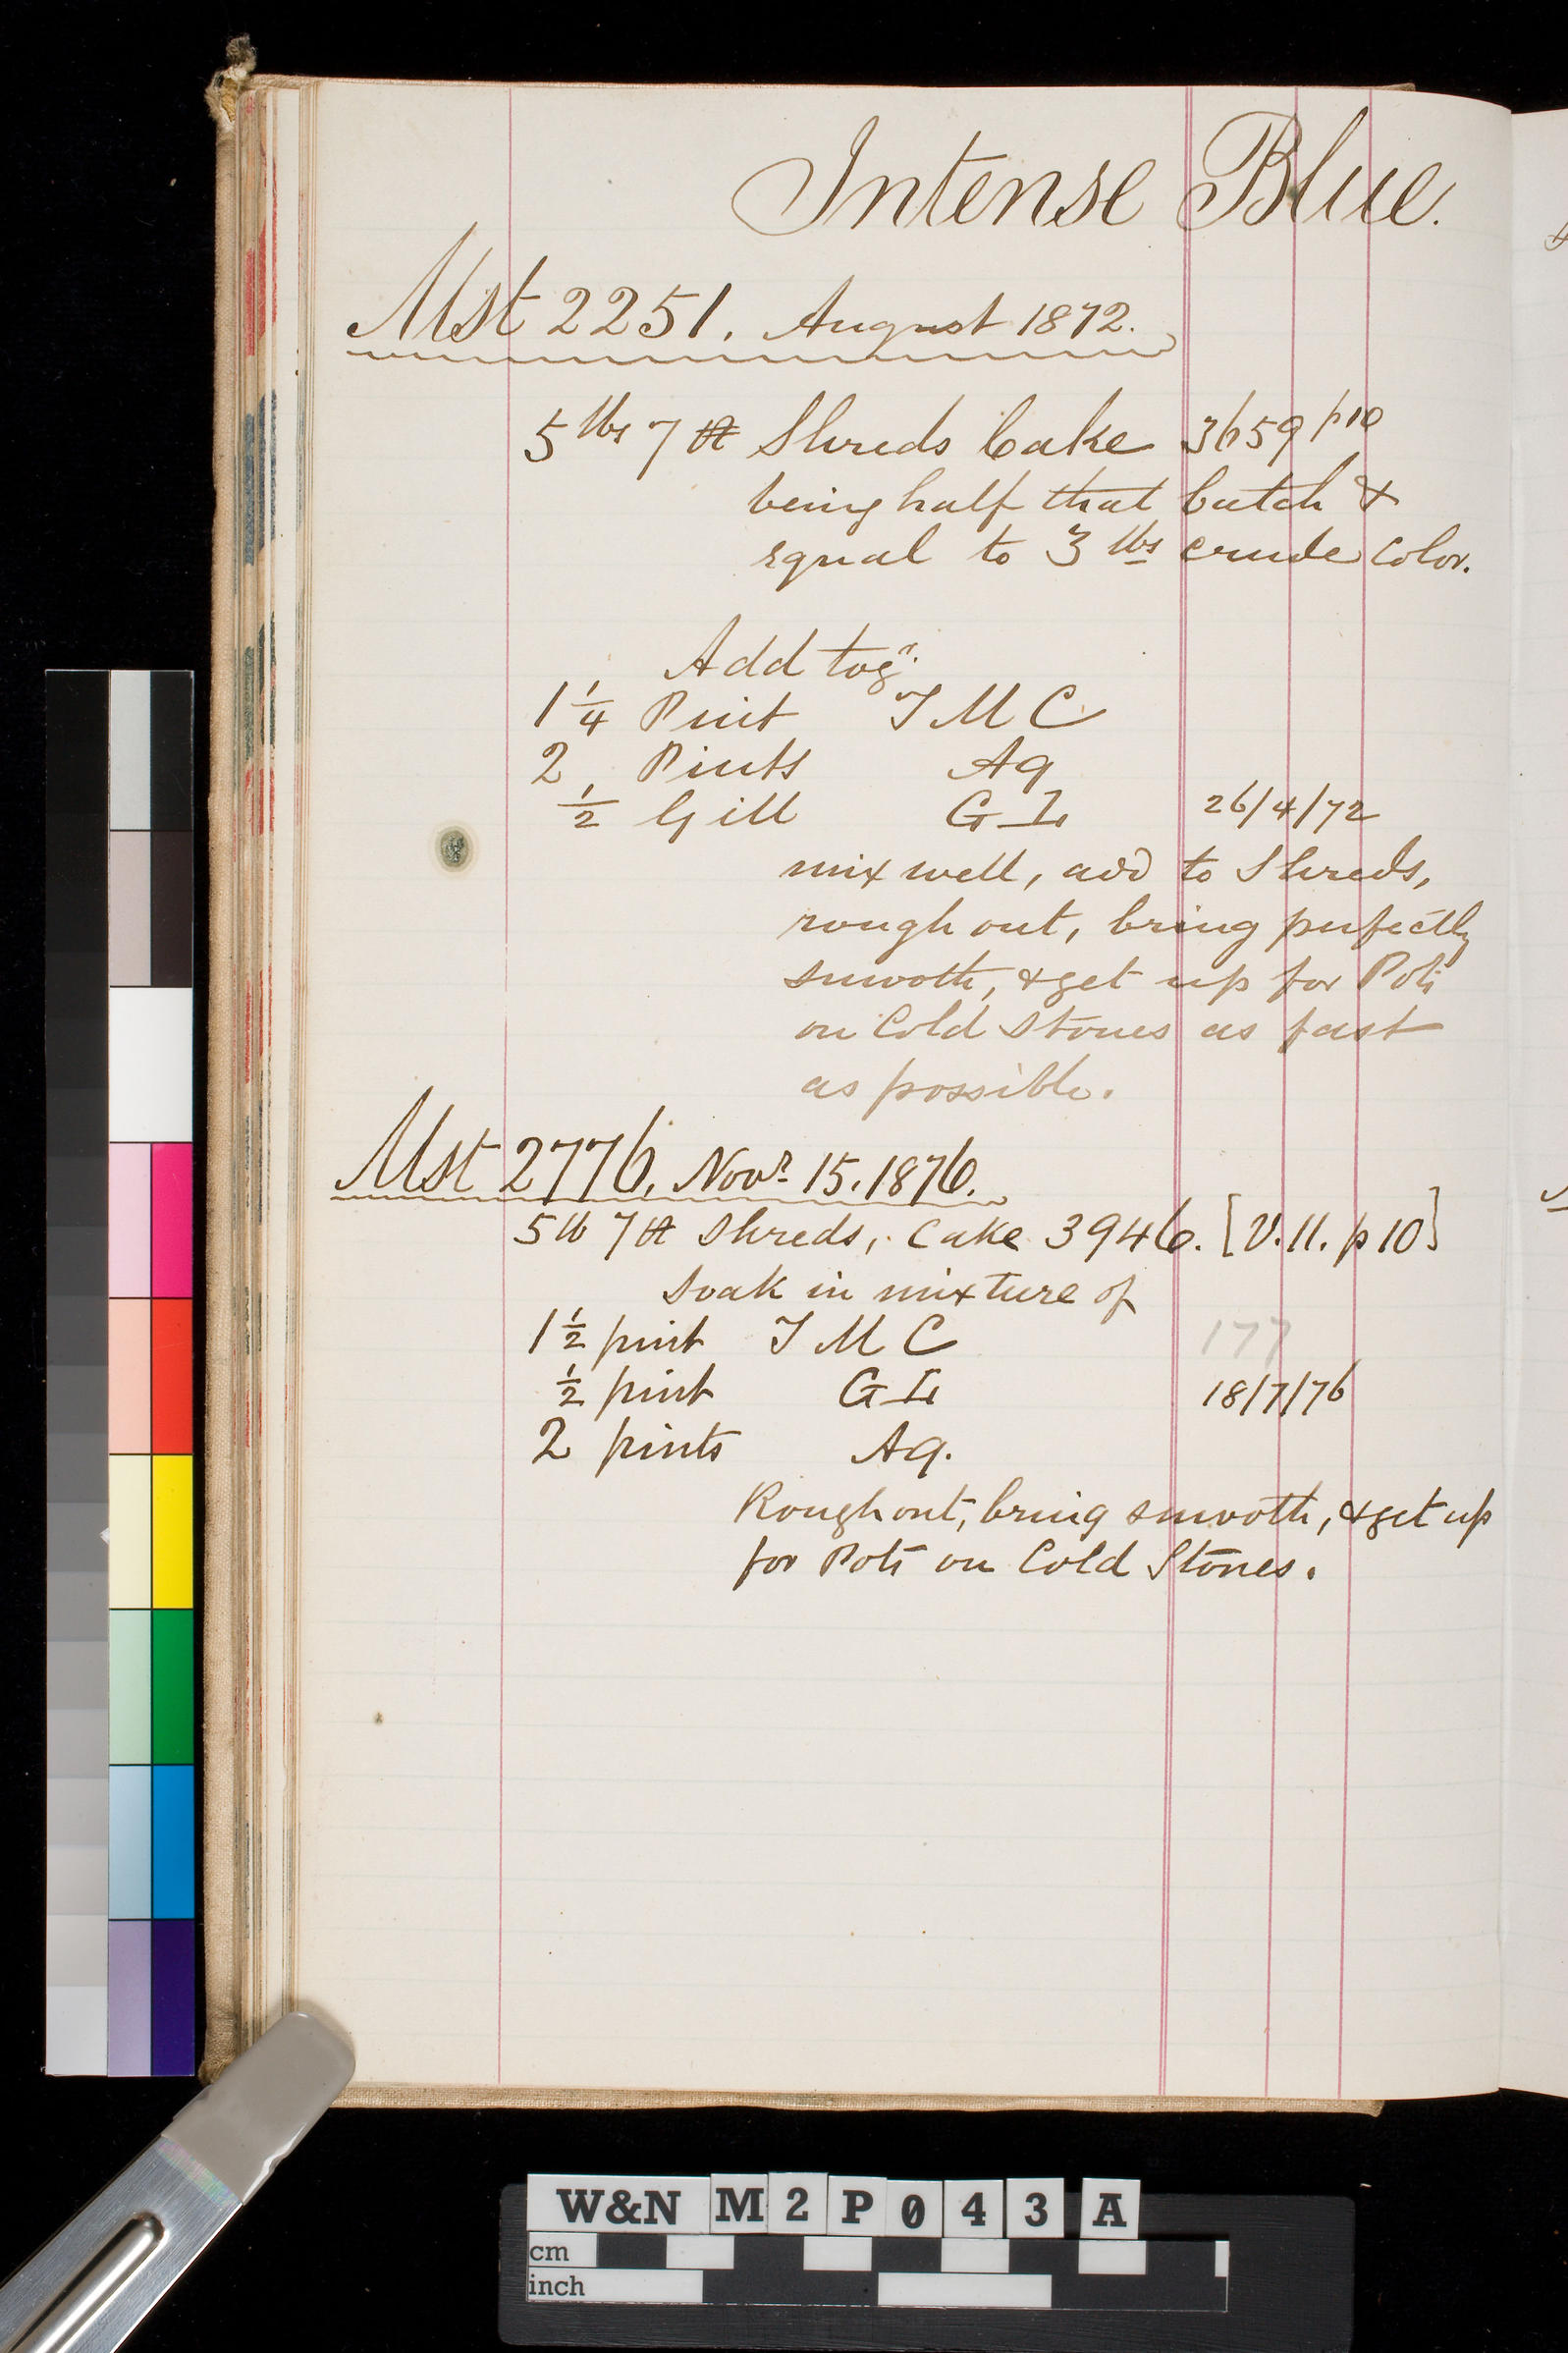 Intense Blue.
Mst 2251. August 1872.
5 lbs 7 Shreds Cake 3659 p10
being half that batch &
equal to 3 lbs crude Color.
Add togr.
1 1/4 Pint I M C
2 Pints Aq
1/2 Gill G L 26/4/72
mix well, add to Shreds,
rough out, bring perfectly
smooth, & get up for Pots
on Cold Stones as fast
as possible.
Mst 2776. Novr 15. 1876.
5 lb 7 Shreds, Cake 3946. [V. 11. p 10]
Soak in mixture of
1 1/2 pint I M C 177
1/2 pint G L 18/7/76
2 pints Aq.
Rough out, bring smooth, & get up
for Pots on Cold Stones.
W&N M2P043A
cm
inch